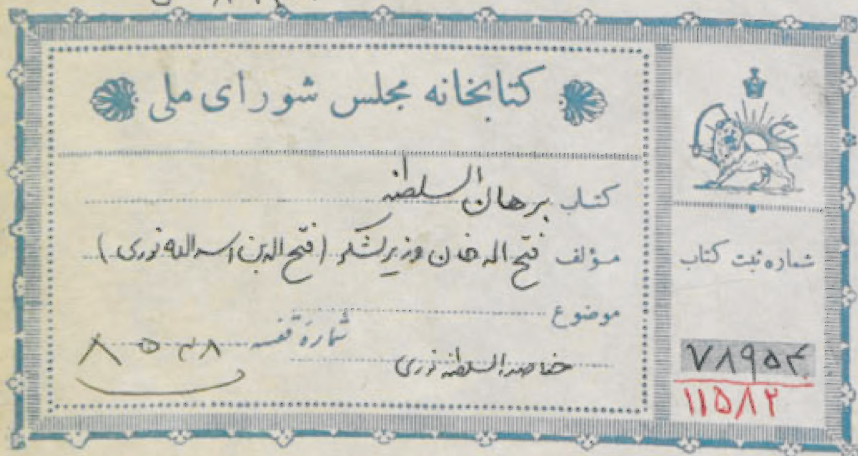 کتابخانه مجلس شورای ملی
کتاب برهان السلطنه
مؤلف فتح اله خان وزیر لشکر (فتح اله بن اسدالله نوری)
موضوع
شماره قفسه
السلطنه نوری
شماره ثبت کتاب
۷۸۹۵۴
۱۱۵۸۲